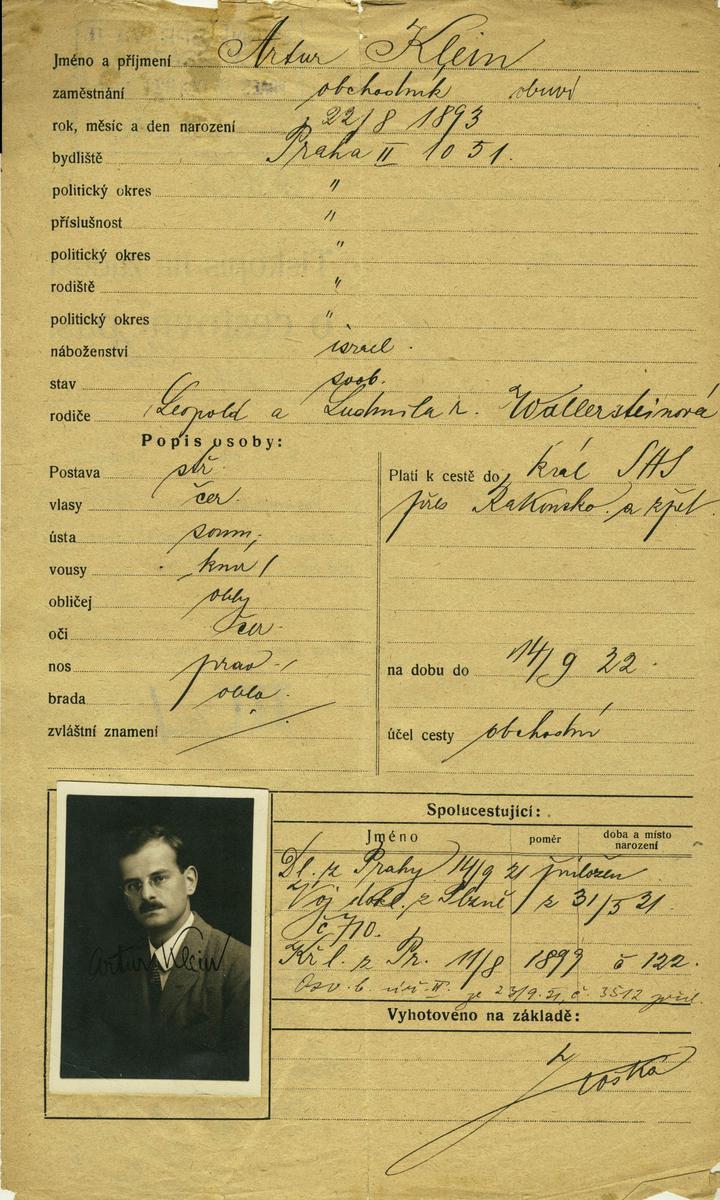 Jméno a příjmení Artur Klein
zaměstnání obchodník obuví
rok, měsíc a den narození 22/8 1893
bydliště Praha II 1051.
politický okres "
příslušnost "
politický okres "
rodiště "
politický okres "
náboženství israel.
stav svob.
rodiče Leopold a Ludmila r. Wallersteinová
Popis osoby:
Postava stř.
vlasy čer.
ústa soum.
vousy knír
obličej oblý
oči čer.
nos prav.
brada oblá.
zvláštní znamení
Platí k cestě do král SHS
přes Rakousko a zpět.
na dobu do 14/9 22.
účel cesty obchodní
Spolucestující:
Jméno poměr doba a místo narození
Dl. z Prahy 14/9 21 přiložen
Voj dokl. z Plzně z 31/5 21.
č 710.
Kř l. z Pr. 11/8 1899 č 122.
Osv. b. II. 23/9. 21, č. 3512 přil.
Vyhotoveno na základě:
Artur Klein